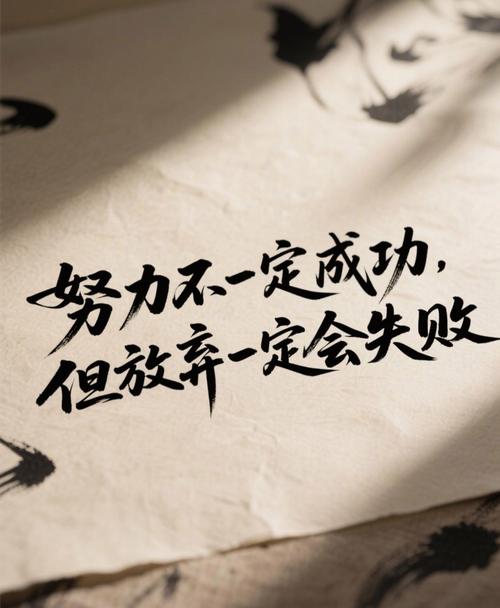 努力不一定成功，
但放弃一定会失败